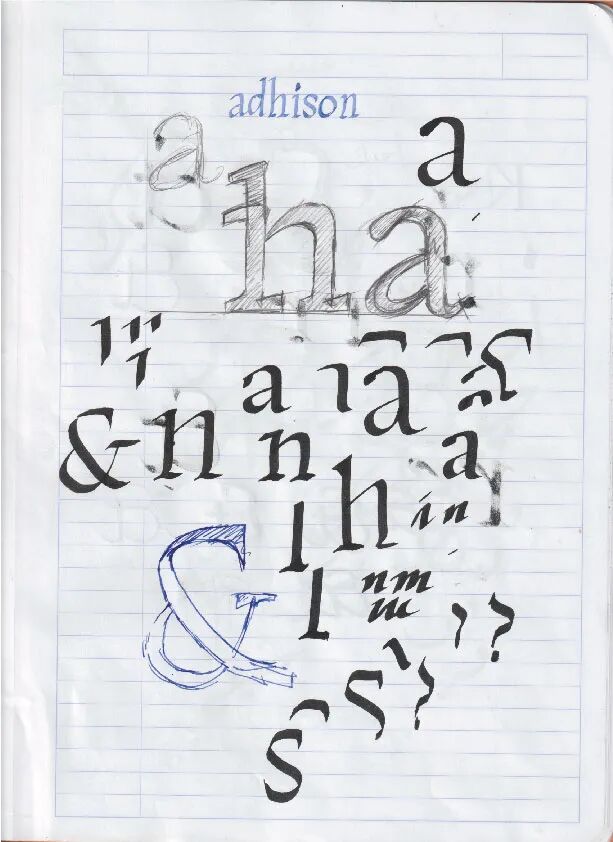 adhison
a a
ha
a a
& n n a
l h in
& l nm
?
s ?
s